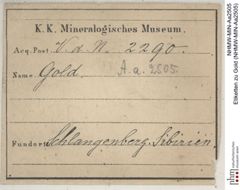 K. K. Mineralogisches Museum.
Acq. Post. V d N. 2290.
Name Gold. A. a. 2505.
Fundort Schlangenberg, Sibirien.
NHMW-MIN-Aa2505
Etiketten zu Gold (NHMW-MIN-Aa2505)
nhm